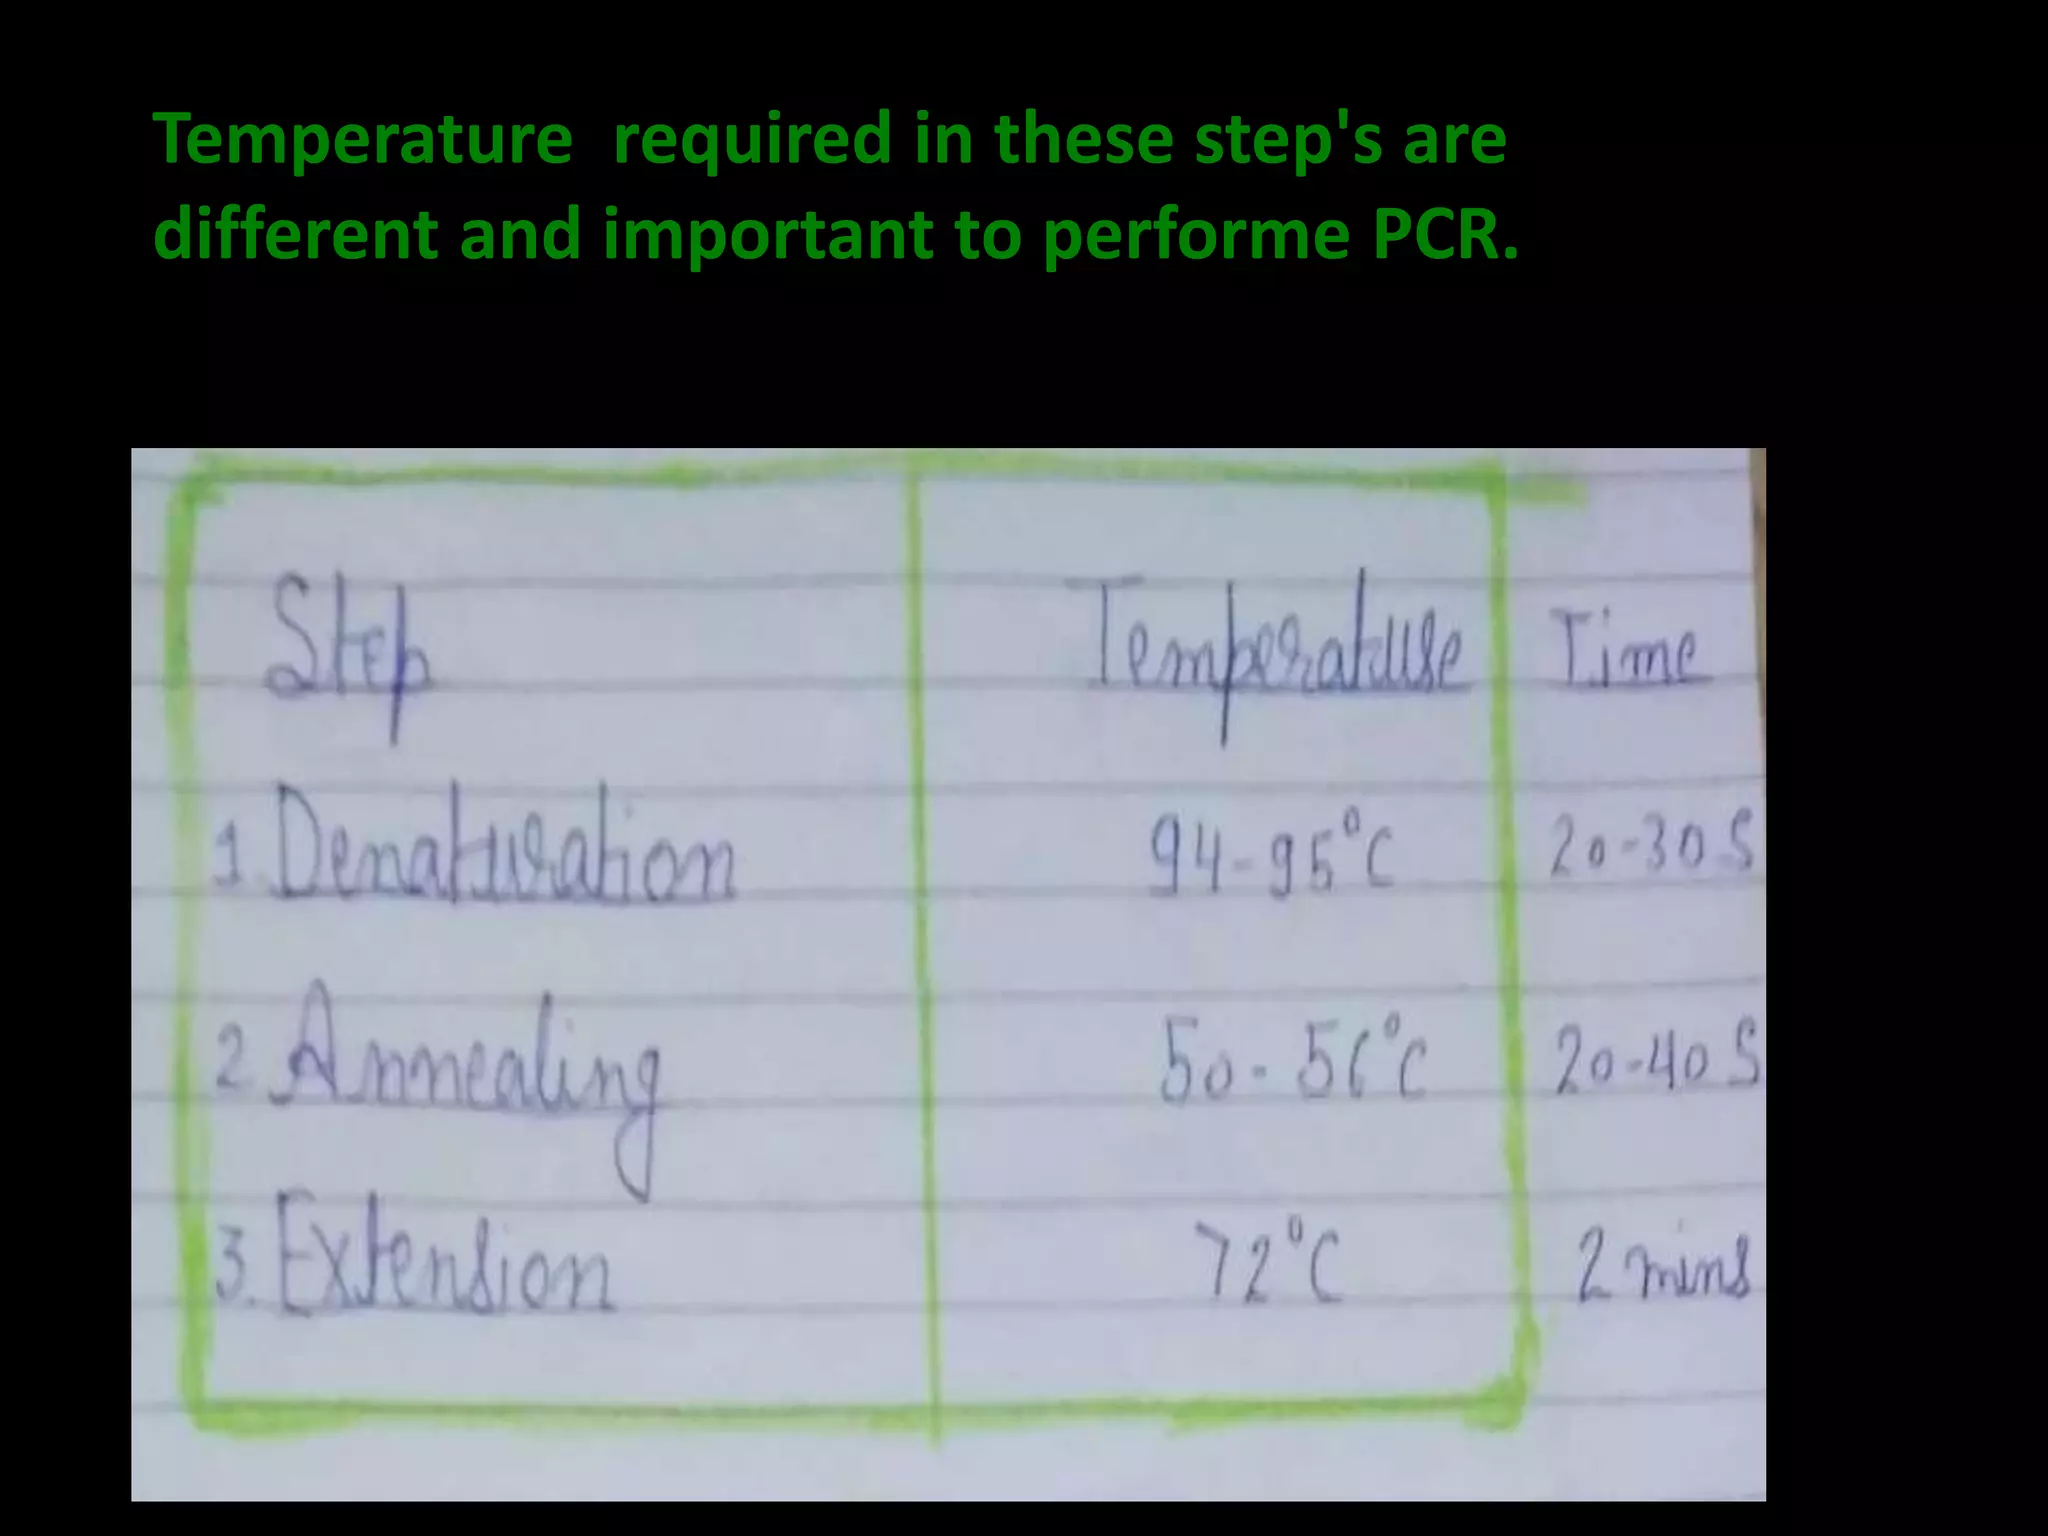 Temperature  required in these step's are
different and important to performe PCR.
Step Temperature Time
1. Denaturation 94-95°C 20-30S
2. Annealing 50-56°C 20-40S
3. Extension 72°C 2 mins